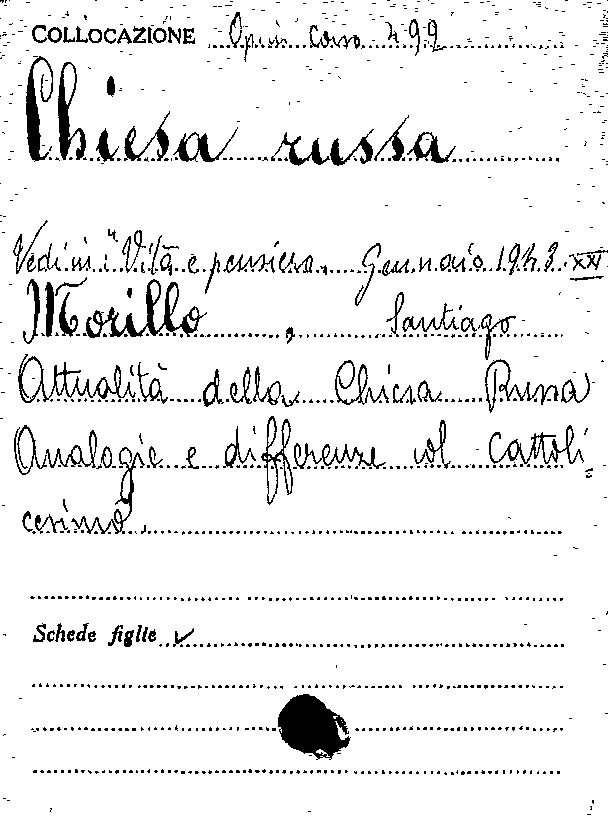 COLLOCAZIONE Opusc Corso 499
Chiesa russa
Vedi in: "Vita e pensiero. Gennaio 1943. XXI
Morillo, Santiago
Attualità della Chiesa Russa
Analogie e differenze col Cattoli=
cesimo".
Schede figlie ✓